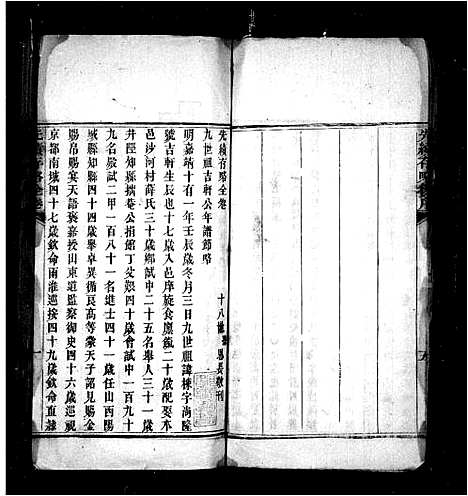 先績存略全卷
九世祖吉軒公年譜節略
十八世 恩長敬刊
明嘉靖十一年壬辰歲冬月三日九世祖諱棟字尚隆
號吉軒生辰也十七歲入邑庠旋食廩餼二十歲配娶本
邑沙河村薛氏三十歲鄉試中二十五名舉人三十一歲
井陘知縣攜菴公捐館丁父艱四十歲會試中一百九十
九名殿試二甲一百八十一名進士四十一歲任山西陽
城縣知縣四十四歲舉卓異循良高等蒙天子詔見賜金
賜帛賜宴天語褒嘉授山東道監察御史四十六歲巡視
京都南城四十七歲欽命兩淮巡按四十九歲欽命直隸
一